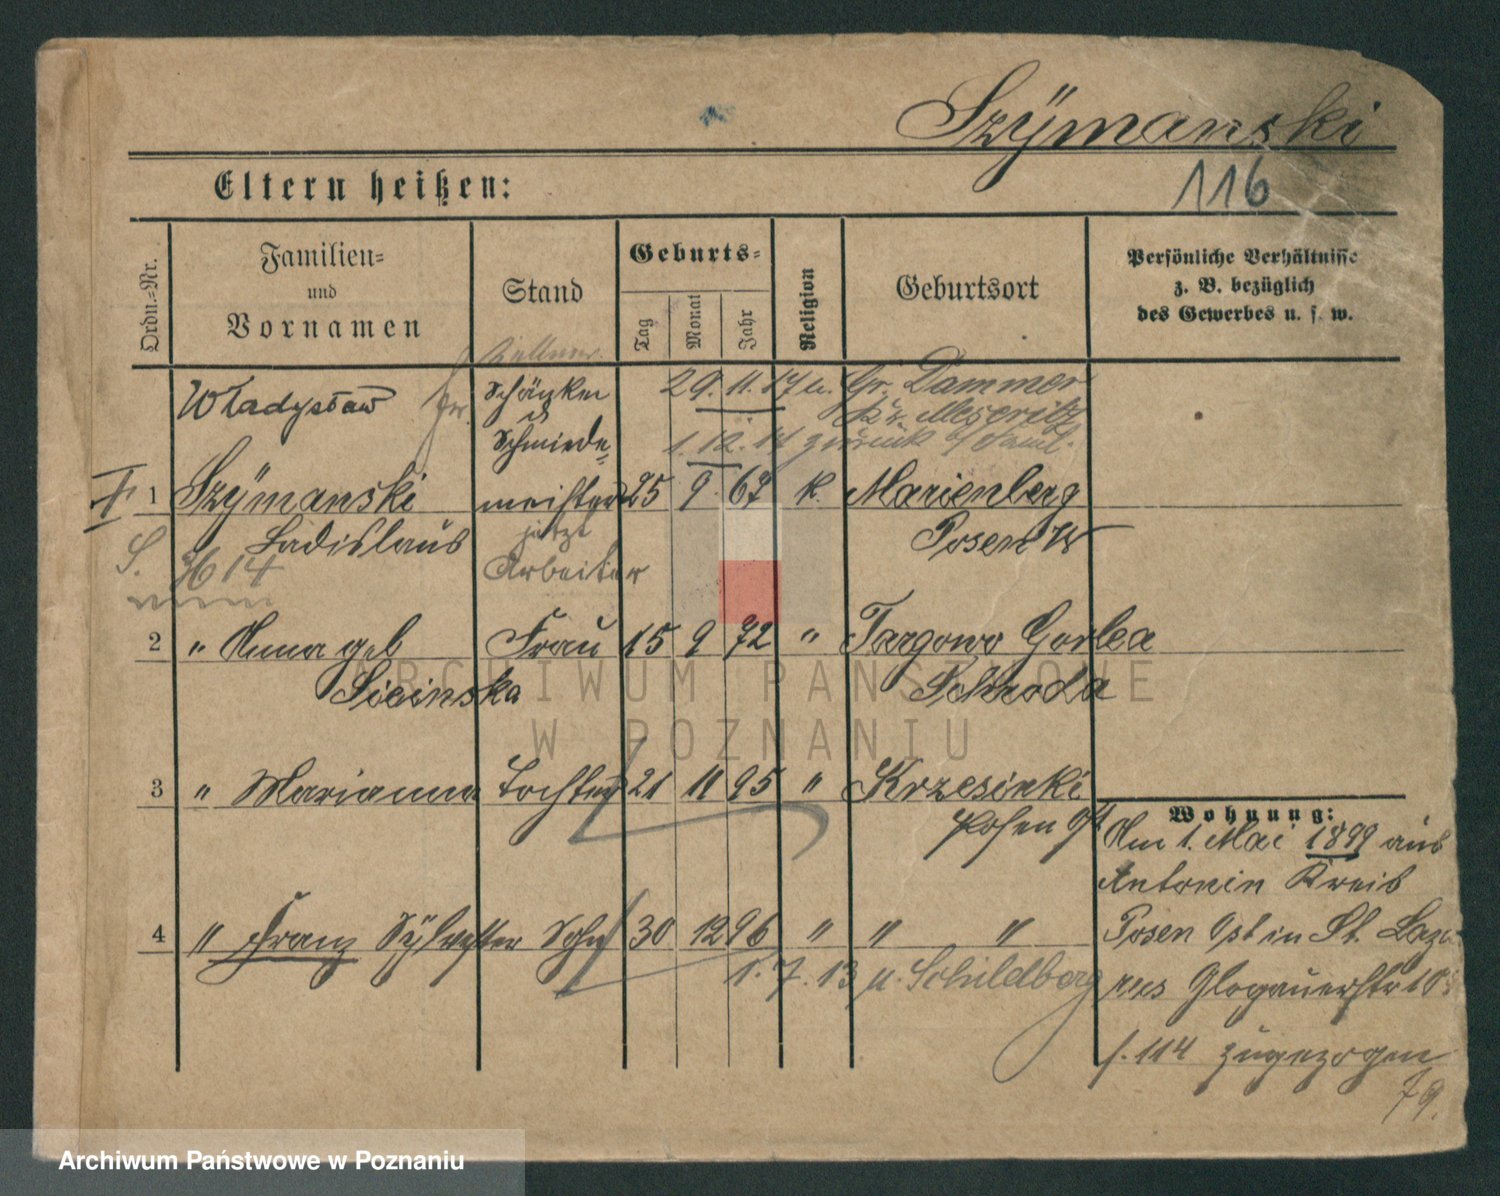 Szÿmanski
116
Eltern heißen:
Ordn.-Nr.
Familien-
und
Vornamen
Stand
Geburts-
Tag
Monat
Jahr
Religion
Geburtsort
Persönliche Verhältnisse
z. B. bezüglich
des Gewerbes u. s. w.
Władysław
Schänker
u
Schmiede-
29. 11. 17 n. Gr. Dammer
Kr. Meseritz
1. 12. 17 zurück
1 Szÿmanski meister 25 9. 67 k. Marienberg
Ladislaus jetzt Posen W
Arbeiter
2 " Anna geb Frau 15 9 72 " Targowo Gorka
Sicinska Schroda
3 " Marianna Tochter 21 11 95 " Krzesinki
Posen Ost
Wohnung:
Am 1. Mai 1899 aus
Antonin Kreis
4 " Franz Sÿlvester Sohn 30 12 96 " " "
Posen Ost in St. Laza
rus Glogauerstr
1. 7. 13 n. Schildberg
f. 114 zugezogen
79.
ARCHIWUM PAŃSTWOWE
W POZNANIU
Archiwum Państwowe w Poznaniu